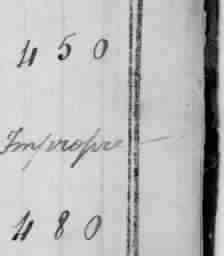 450
Impropre
480